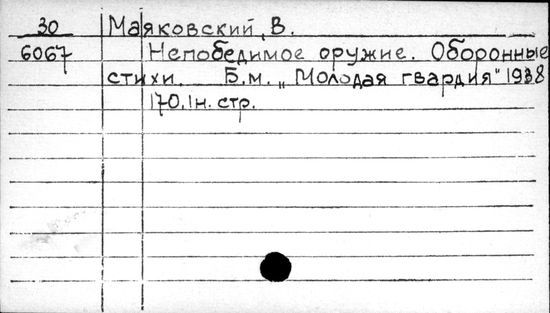 30 Маяковский, В.
6067 Непобедимое оружие. Оборонные
стихи. Б.м. „Молодая гвардия" 1938
170, 1н. стр.